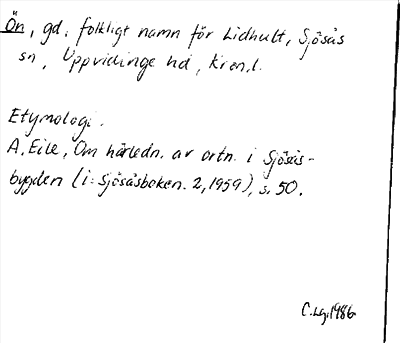 Ön, gd, folkligt namn för Lidhult, Sjösås
sn, Uppvidinge hd, Kron.l.
Etymologi.
A. Eile, Om härledn. av ortn. i Sjösås-
bygden (i: Sjösåsboken. 2, 1959), s. 50.
C.Lg.1986